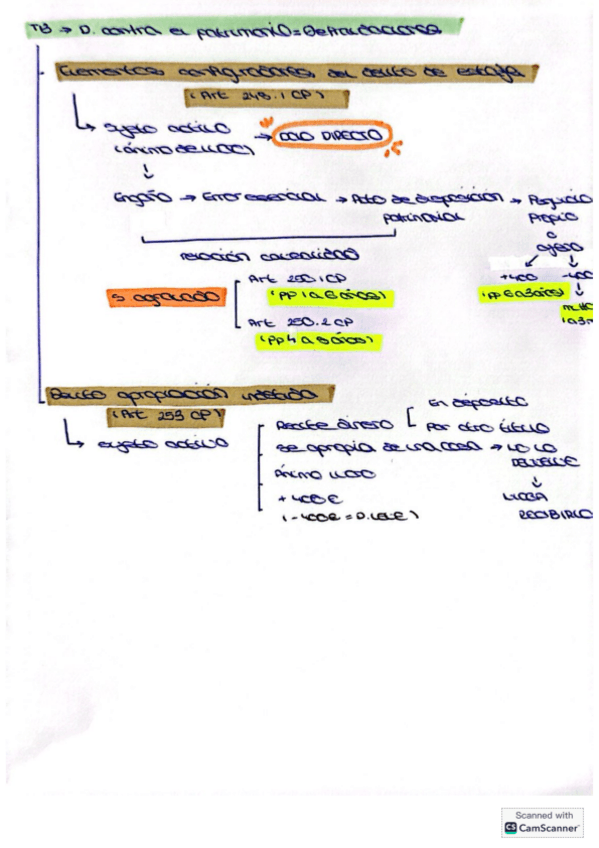 T8 → D. contra el patrimonio = Defraudaciones
Elementos configuradores del delito de estafa
(Art 248.1 CP)
Sujeto activo → DOLO DIRECTO
(ánimo de lucro)
Engaño → Error esencial → Acto de disposición → Perjuicio
patrimonial propio
o
ajeno
relación causalidad
+400 -400
(PP 6a3años)
S agravado
Art 250.1 CP
(PP 1 a 6 años)
Art 250.2 CP
(PP 4 a 8 años)
Delito apropiación indebida
(Art 253 CP)
sujeto activo
Recibe dinero
En depósito
Por otro título
Se apropia de una cosa → LO
DEVUELVE
Ánimo lucro
NIEGA
+ 400 €
RECIBIRLO
(-400€ = D. LEVE)
Scanned with
CS CamScanner